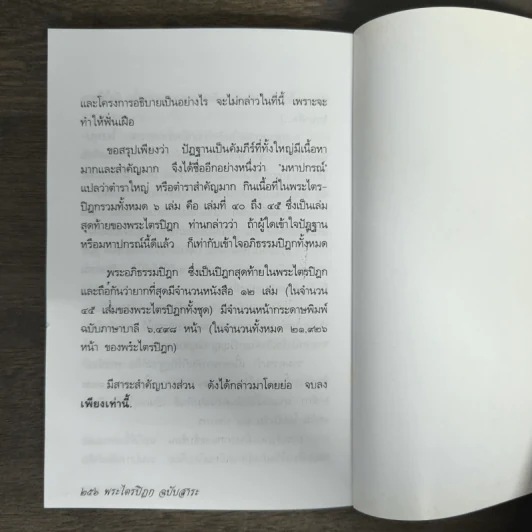 และโครงการอธิบายเป็นอย่างไร จะไม่กล่าวในที่นี้ เพราะจะ
ทำให้ฟั่นเฝือ
ขอสรุปเพียงว่า ปัฏฐานเป็นคัมภีร์ที่ทั้งใหญ่มีเนื้อหา
มากและสำคัญมาก จึงได้ชื่ออีกอย่างหนึ่งว่า "มหาปกรณ์"
แปลว่าตำราใหญ่ หรือตำราสำคัญมาก กินเนื้อที่ในพระไตร-
ปิฎกรวมทั้งหมด ๖ เล่ม คือ เล่มที่ ๔๐ ถึง ๔๕ ซึ่งเป็นเล่ม
สุดท้ายของพระไตรปิฎก ท่านกล่าวว่า ถ้าผู้ใดเข้าใจปัฏฐาน
หรือมหาปกรณ์นี้ดีแล้ว ก็เท่ากับเข้าใจอภิธรรมปิฎกทั้งหมด
พระอภิธรรมปิฎก ซึ่งเป็นปิฎกสุดท้ายในพระไตรปิฎก
และถือกันว่ายากที่สุดมีจำนวนหนังสือ ๑๒ เล่ม (ในจำนวน
๔๕ เล่มของพระไตรปิฎกทั้งชุด) มีจำนวนหน้ากระดาษพิมพ์
ฉบับภาษาบาลี ๖,๔๙๘ หน้า (ในจำนวนทั้งหมด ๒๑,๙๒๖
หน้า ของพระไตรปิฎก)
มีสาระสำคัญบางส่วน ดังได้กล่าวมาโดยย่อ จบลง
เพียงเท่านี้.
๒๕๖ พระไตรปิฎก ฉบับสาระ